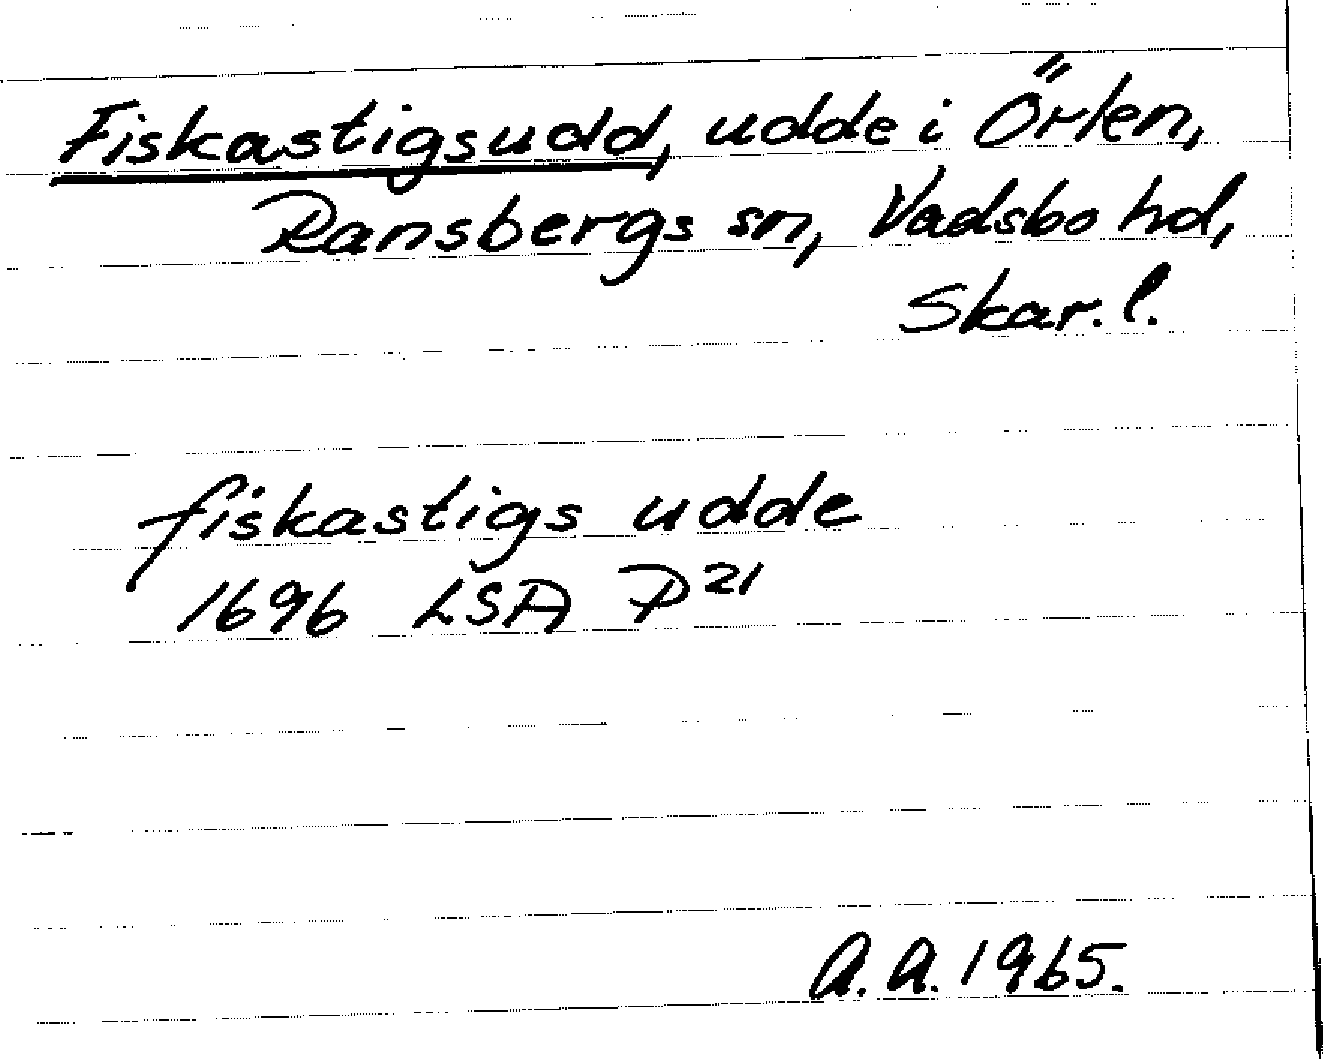 Fiskastigsudd, udde i Örlen,
Ransbergs sn, Vadsbo hd,
Skar. l.
fiskastigs udde
1696 LSA P21
A.A. 1965.